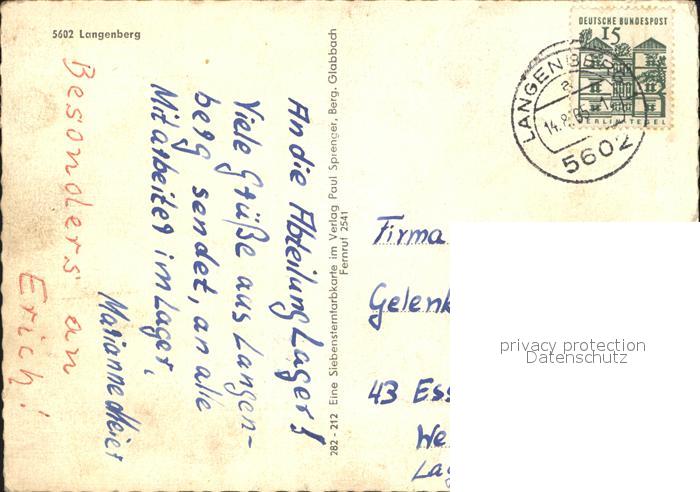 5602 Langenberg
An die Abteilung Lager!
Viele Grüße aus Langen-
berg sendet, an alle
Mitarbeiter im Lager,
Marianne Meier
Besonders an
Erich!
282 - 212 Eine Siebensternfarbkarte im Verlag Paul Sprenger, Berg. Glabbach
Fernruf 2541
DEUTSCHE BUNDESPOST
15
BERLIN-TEGEL
LANGENBERG
a
14.8.
5602
Firma
Gelenk
43 Ess
We
Lag
privacy protection
Datenschutz